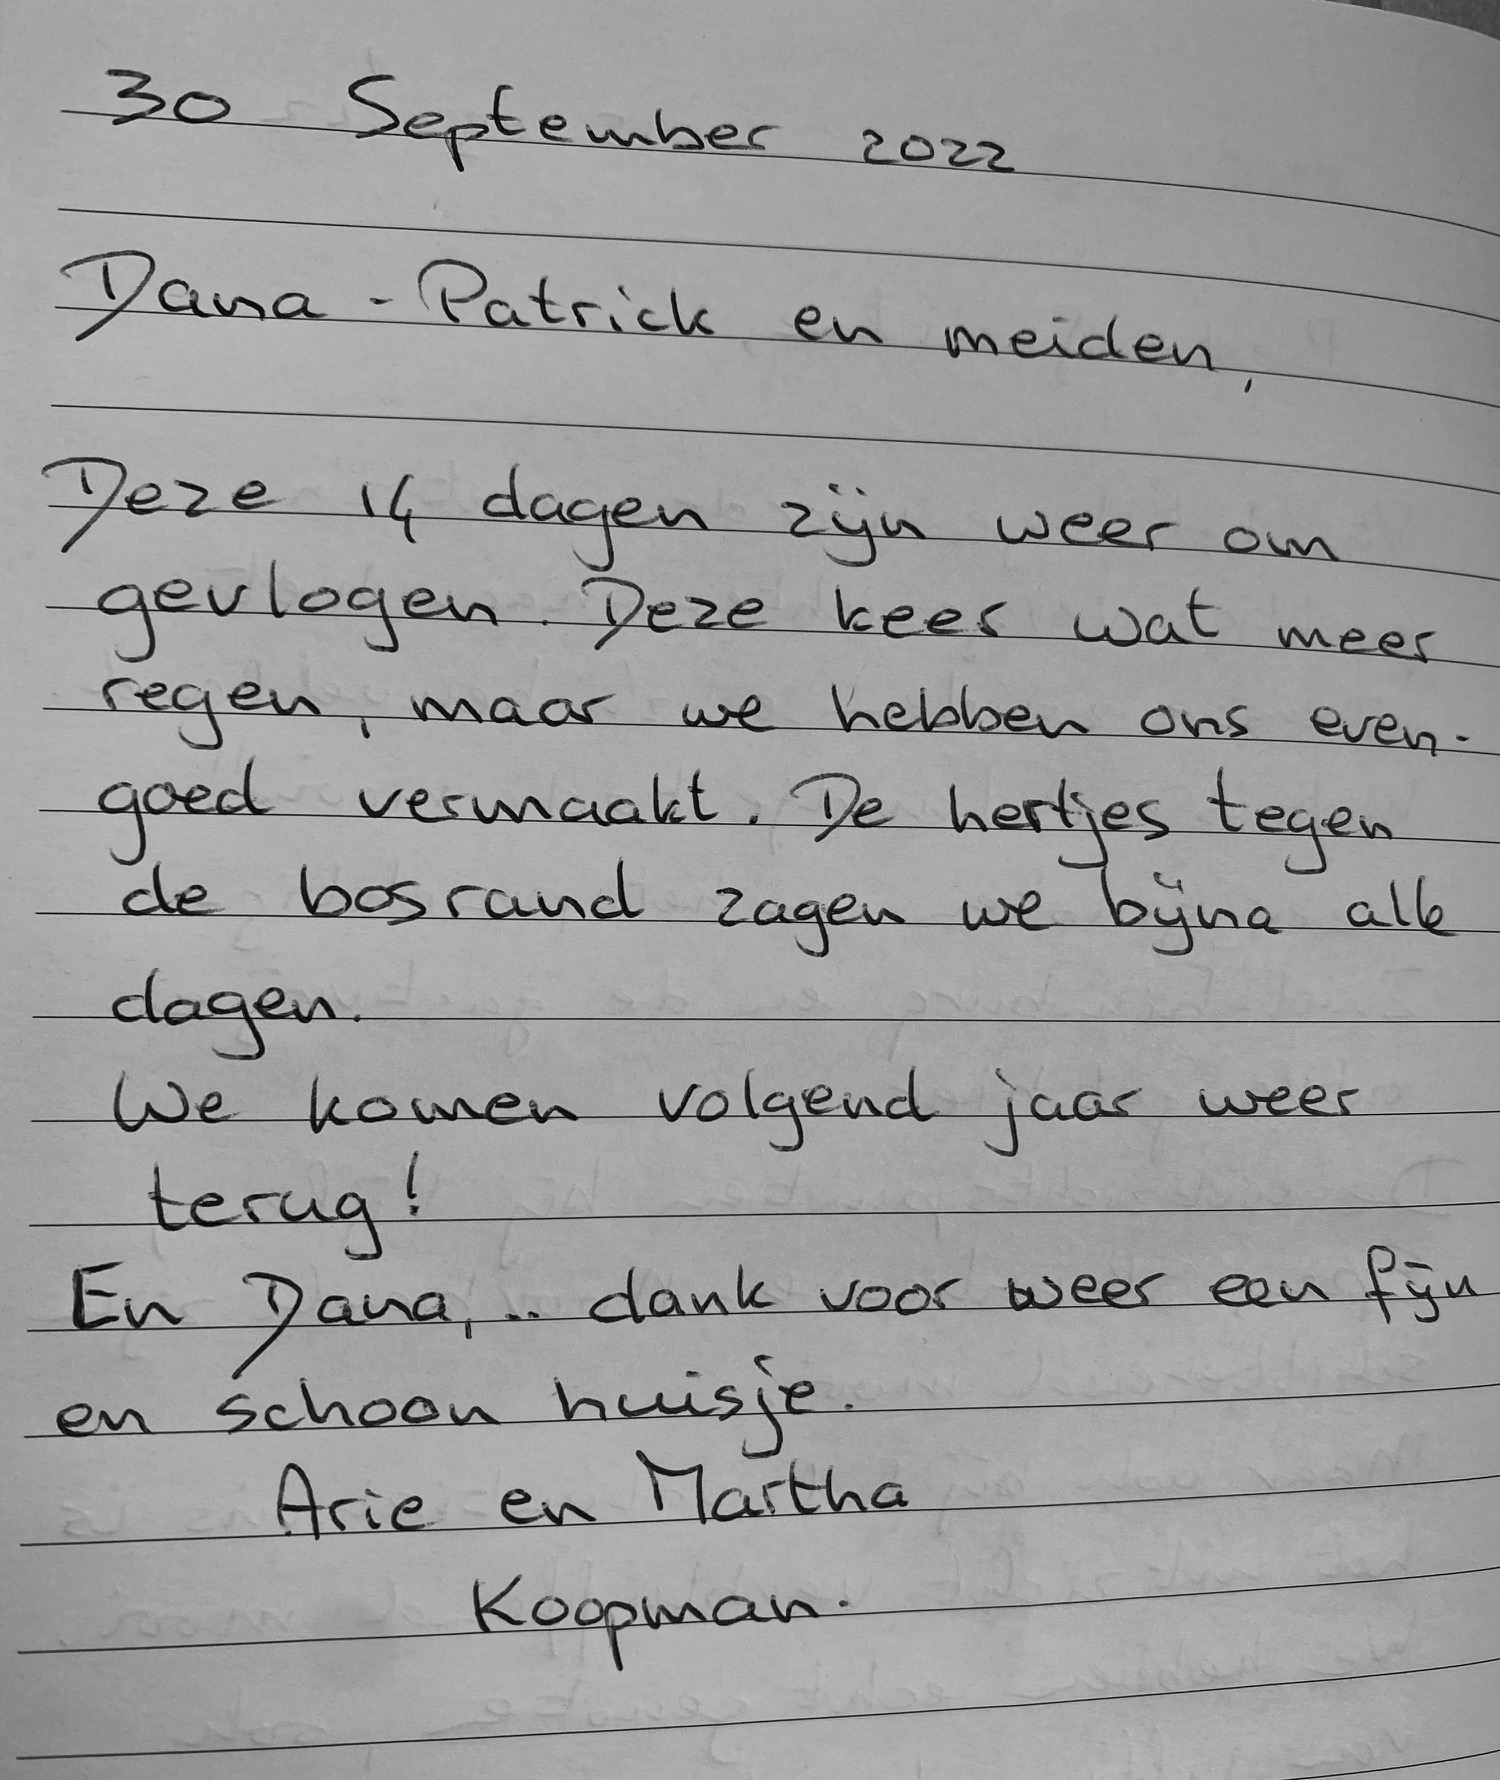 30 September 2022
Dana - Patrick en meiden,
Deze 14 dagen zijn weer om
gevlogen. Deze keer wat meer
regen, maar we hebben ons even-
goed vermaakt. De hertjes tegen
de bosrand zagen we bijna alle
dagen.
We komen volgend jaar weer
terug!
En Dana, .. dank voor weer een fijn
en schoon huisje.
Arie en Martha
Koopman.